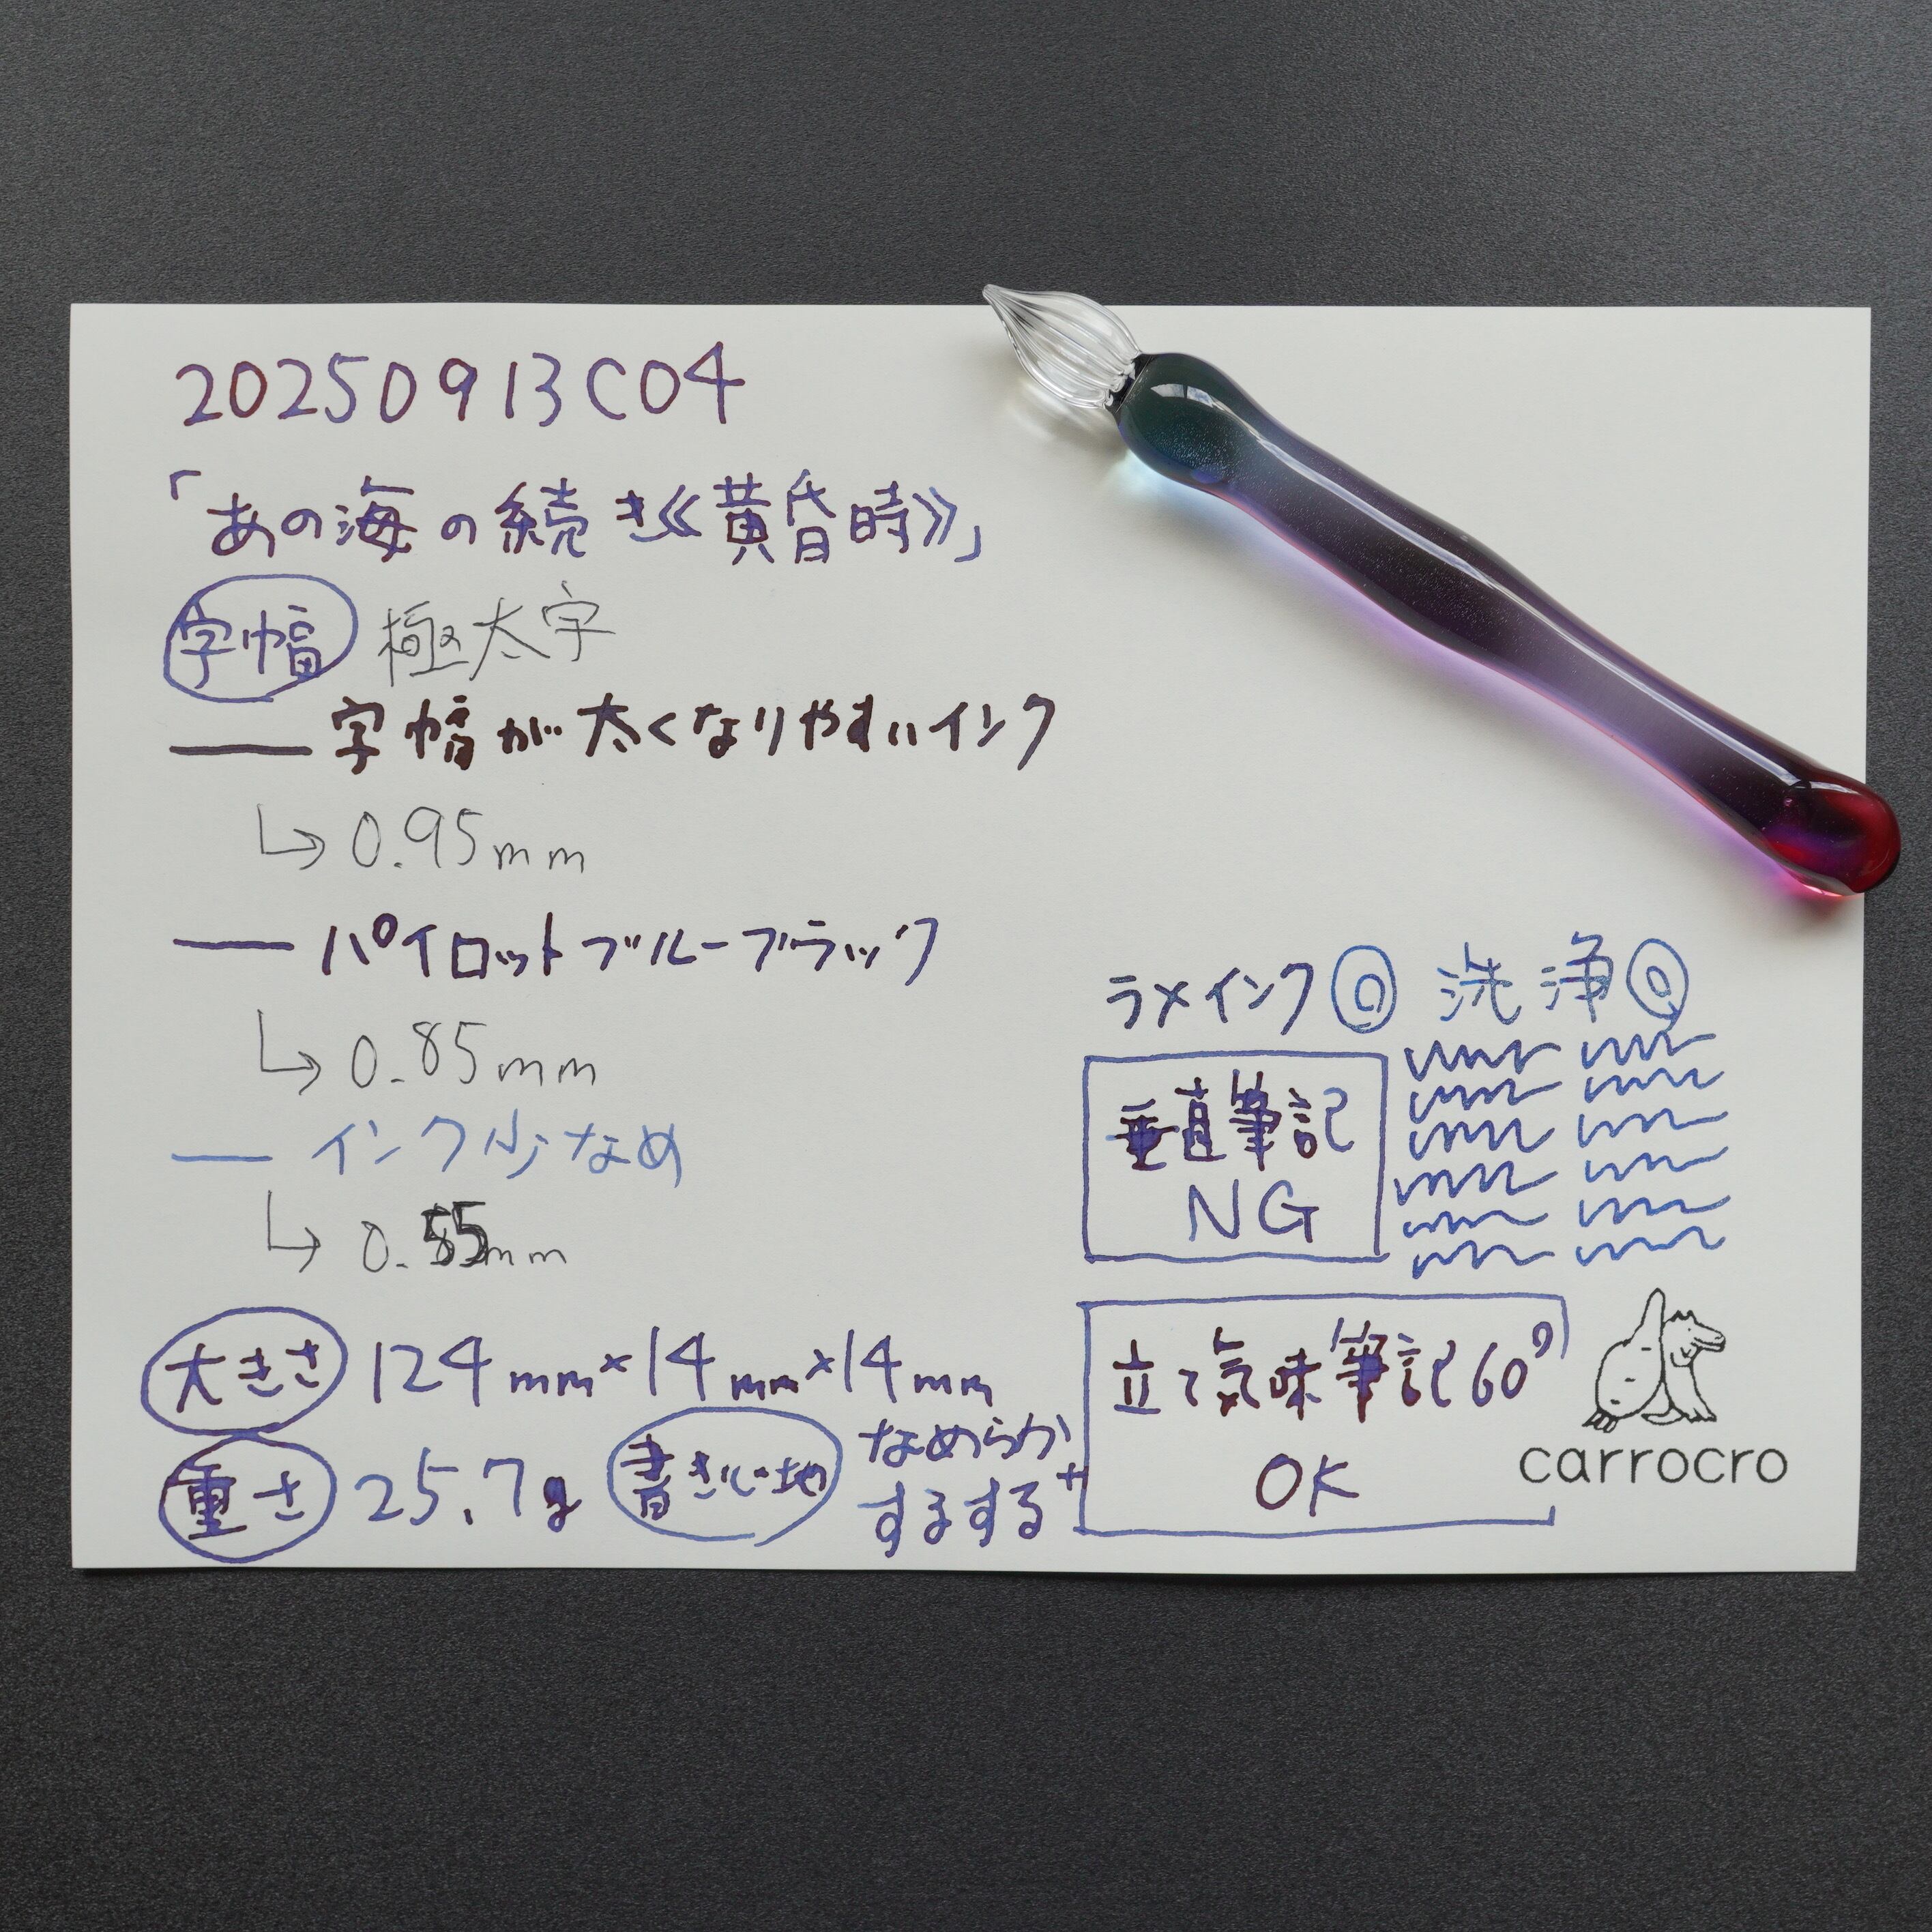 20250913C04
「あの海の続き《黄昏時》」
字幅 極太字
字幅が太くなりやすいインク
0.95mm
パイロットブルーブラック
0.85mm
インク少なめ
0.55mm
大きさ 124mm×14mm×14mm
重さ 25.7g
書き心地 なめらか
するする+
ラメインク◎ 洗浄◎
垂直筆記
NG
立て気味筆記60°
OK
carrocro